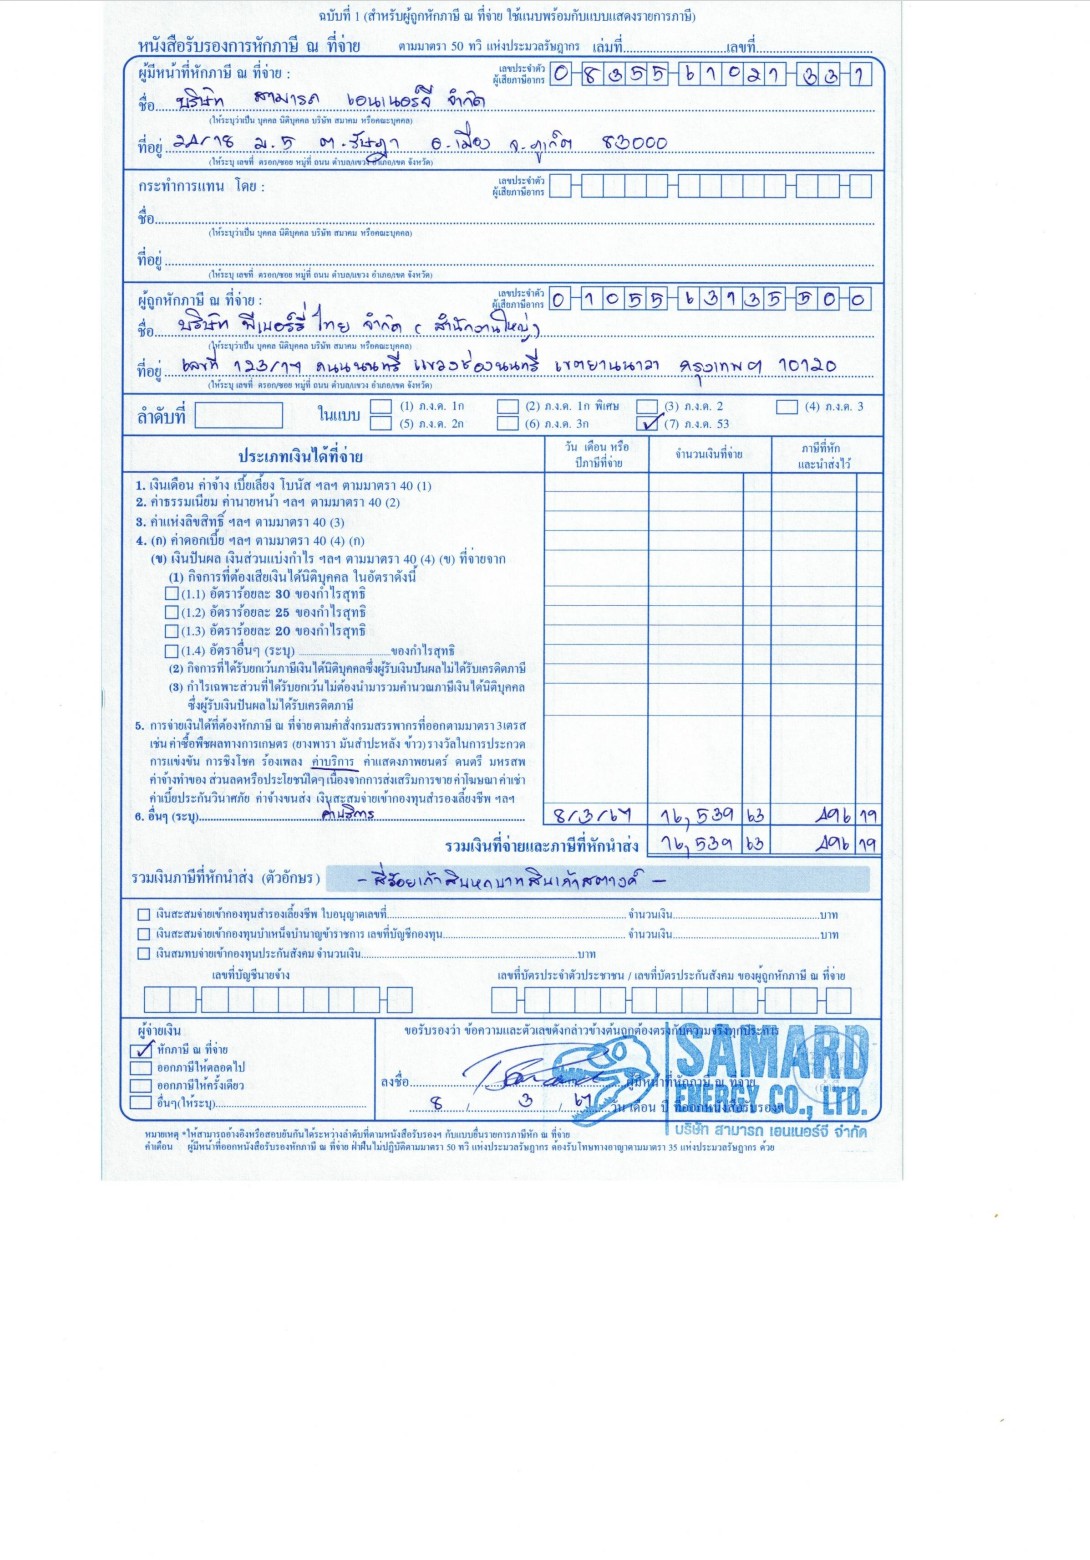 ฉบับที่ 1 (สำหรับผู้ถูกหักภาษี ณ ที่จ่าย ใช้แนบพร้อมกับแบบแสดงรายการภาษี)
หนังสือรับรองการหักภาษี ณ ที่จ่าย ตามมาตรา 50 ทวิ แห่งประมวลรัษฎากร เล่มที่ เลขที่
ผู้มีหน้าที่หักภาษี ณ ที่จ่าย : เลขประจำตัวผู้เสียภาษีอากร 0-8355-61021-33-1
ชื่อ บริษัท สามารถ เอนเนอร์จี จำกัด
(ให้ระบุว่าเป็น บุคคล นิติบุคคล บริษัท สมาคม หรือคณะบุคคล)
ที่อยู่ 24/18 ม.5 ต.รัษฎา อ.เมือง จ.ภูเก็ต 83000
(ให้ระบุ เลขที่ ตรอก/ซอย หมู่ที่ ถนน ตำบล/แขวง อำเภอ/เขต จังหวัด)
กระทำการแทน โดย : เลขประจำตัวผู้เสียภาษีอากร
ชื่อ
(ให้ระบุว่าเป็น บุคคล นิติบุคคล บริษัท สมาคม หรือคณะบุคคล)
ที่อยู่
(ให้ระบุ เลขที่ ตรอก/ซอย หมู่ที่ ถนน ตำบล/แขวง อำเภอ/เขต จังหวัด)
ผู้ถูกหักภาษี ณ ที่จ่าย : เลขประจำตัวผู้เสียภาษีอากร 0-1055-63135-50-0
ชื่อ บริษัท พีเนอร์รี่ ไทย จำกัด (สำนักงานใหญ่)
(ให้ระบุว่าเป็น บุคคล นิติบุคคล บริษัท สมาคม หรือคณะบุคคล)
ที่อยู่ เลขที่ 123/19 ถนนนนทรี แขวงช่องนนทรี เขตยานนาวา กรุงเทพฯ 10120
(ให้ระบุ เลขที่ ตรอก/ซอย หมู่ที่ ถนน ตำบล/แขวง อำเภอ/เขต จังหวัด)
ลำดับที่ ในแบบ (1) ภ.ง.ด. 1ก (2) ภ.ง.ด. 1ก พิเศษ (3) ภ.ง.ด. 2 (4) ภ.ง.ด. 3
(5) ภ.ง.ด. 2ก (6) ภ.ง.ด. 3ก (7) ภ.ง.ด. 53
ประเภทเงินได้ที่จ่าย วัน เดือน หรือปีภาษีที่จ่าย จำนวนเงินที่จ่าย ภาษีที่หักและนำส่งไว้
1. เงินเดือน ค่าจ้าง เบี้ยเลี้ยง โบนัส ฯลฯ ตามมาตรา 40 (1)
2. ค่าธรรมเนียม ค่านายหน้า ฯลฯ ตามมาตรา 40 (2)
3. ค่าแห่งลิขสิทธิ์ ฯลฯ ตามมาตรา 40 (3)
4. (ก) ค่าดอกเบี้ย ฯลฯ ตามมาตรา 40 (4) (ก)
(ข) เงินปันผล เงินส่วนแบ่งกำไร ฯลฯ ตามมาตรา 40 (4) (ข) ที่จ่ายจาก
(1) กิจการที่ต้องเสียเงินได้นิติบุคคล ในอัตราดังนี้
(1.1) อัตราร้อยละ 30 ของกำไรสุทธิ
(1.2) อัตราร้อยละ 25 ของกำไรสุทธิ
(1.3) อัตราร้อยละ 20 ของกำไรสุทธิ
(1.4) อัตราอื่นๆ (ระบุ) ของกำไรสุทธิ
(2) กิจการที่ได้รับยกเว้นภาษีเงินได้นิติบุคคลซึ่งผู้รับเงินปันผลไม่ได้รับเครดิตภาษี
(3) กำไรเฉพาะส่วนที่ได้รับยกเว้นไม่ต้องนำมารวมคำนวณภาษีเงินได้นิติบุคคล
ซึ่งผู้รับเงินปันผลไม่ได้รับเครดิตภาษี
5. การจ่ายเงินได้ที่ต้องหักภาษี ณ ที่จ่ายตามคำสั่งกรมสรรพากรที่ออกตามมาตรา 3เตรส
เช่น ค่าซื้อพืชผลทางการเกษตร (ยางพารา มันสำปะหลัง ข้าว) รางวัลในการประกวด
การแข่งขัน การชิงโชค ร้องเพลง ค่าบริการ ค่าแสดงภาพยนตร์ ดนตรี มหรสพ
ค่าจ้างทำของ ส่วนลดหรือประโยชน์ใดๆ เนื่องจากการส่งเสริมการขาย ค่าโฆษณา ค่าเช่า
ค่าเบี้ยประกันวินาศภัย ค่าจ้างขนส่ง เงินสะสมจ่ายเข้ากองทุนสำรองเลี้ยงชีพ ฯลฯ
6. อื่นๆ (ระบุ) ค่าบริการ 8/3/67 16,539 63 496 19
รวมเงินที่จ่ายและภาษีที่หักนำส่ง 16,539 63 496 19
รวมเงินภาษีที่หักนำส่ง (ตัวอักษร) - สี่ร้อยเก้าสิบหกบาทสิบเก้าสตางค์ -
เงินสะสมจ่ายเข้ากองทุนสำรองเลี้ยงชีพ ใบอนุญาตเลขที่ จำนวนเงิน บาท
เงินสะสมจ่ายเข้ากองทุนบำเหน็จบำนาญข้าราชการ เลขที่บัญชีกองทุน จำนวนเงิน บาท
เงินสมทบจ่ายเข้ากองทุนประกันสังคม จำนวนเงิน บาท
เลขที่บัญชีนายจ้าง เลขที่บัตรประจำตัวประชาชน / เลขที่บัตรประกันสังคม ของผู้ถูกหักภาษี ณ ที่จ่าย
ผู้จ่ายเงิน ขอรับรองว่า ข้อความและตัวเลขดังกล่าวข้างต้นถูกต้องตรงกับความจริงทุกประการ
หักภาษี ณ ที่จ่าย
ออกภาษีให้ตลอดไป
ออกภาษีให้ครั้งเดียว
อื่นๆ(ให้ระบุ)
ลงชื่อ ผู้มีหน้าที่หักภาษี ณ ที่จ่าย
8 / 3 / 67 วัน เดือน ปี ที่ออกหนังสือรับรองฯ
SAMARD
ENERGY CO., LTD.
บริษัท สามารถ เอนเนอร์จี จำกัด
หมายเหตุ *ให้สามารถอ้างอิงหรือสอบยันกันได้ระหว่างลำดับที่ตามหนังสือรับรองฯ กับแบบยื่นรายการภาษีหัก ณ ที่จ่าย
คำเตือน ผู้มีหน้าที่ออกหนังสือรับรองหักภาษี ณ ที่จ่าย ฝ่าฝืนไม่ปฏิบัติตามมาตรา 50 ทวิ แห่งประมวลรัษฎากร ต้องรับโทษทางอาญาตามมาตรา 35 แห่งประมวลรัษฎากร ด้วย